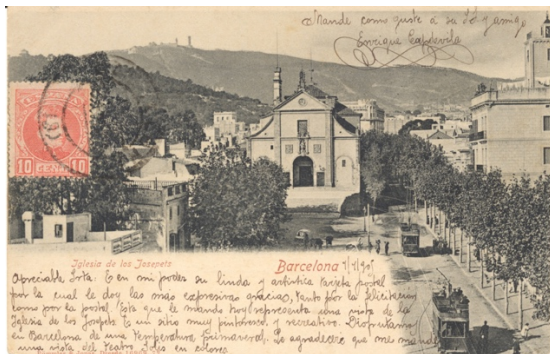 Mande como guste á su S.S. y amigo
Enrique Capdevila
10 CENT. 10
Iglesia de los Josepets
Barcelona
Apreciable Srta: En mi poder su linda y artistica tarjeta postal
por la cual le doy las mas expresivas gracias, tanto por la felicitacion
como por la postal. Esta que le mando hoy representa una vista de la
Iglesia de los Josepets. Es un sitio muy pintoresco y recreativo. Disfrutamos
en Barcelona de una temperatura primaveral. Le agradeceré que me mande
una vista del Teatro en colores